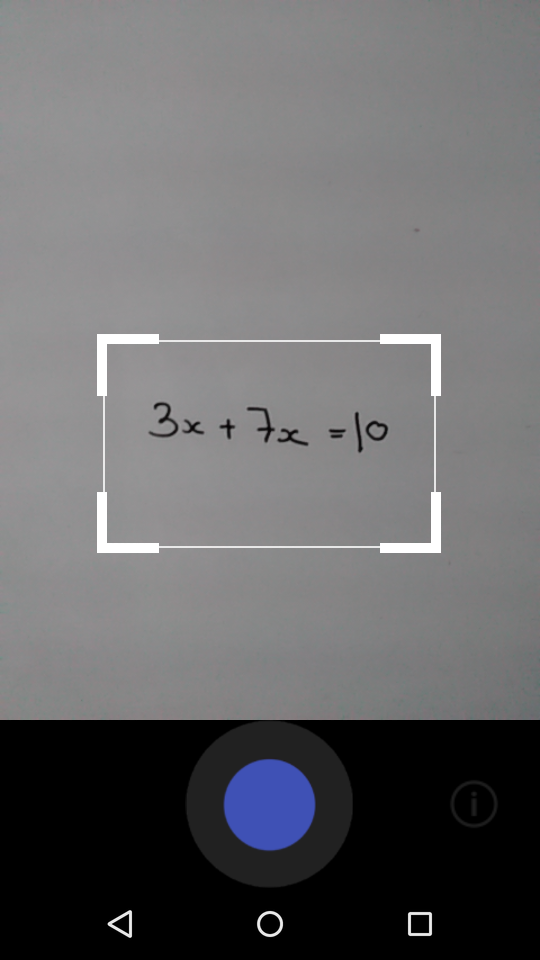 3x + 7x = 10